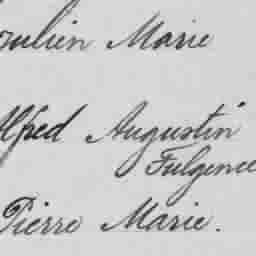 Marie
Alfred Augustin
Fulgence
Pierre Marie.